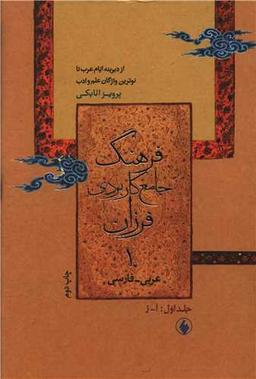 از دیرینه ایام عرب تا
نوترین واژگان علم و ادب
پرویز اتابکی
فرهنگ
جامع کاربردی
فرزان
۱
عربی-فارسی
جلد اول: آ-ز
چاپ دوم